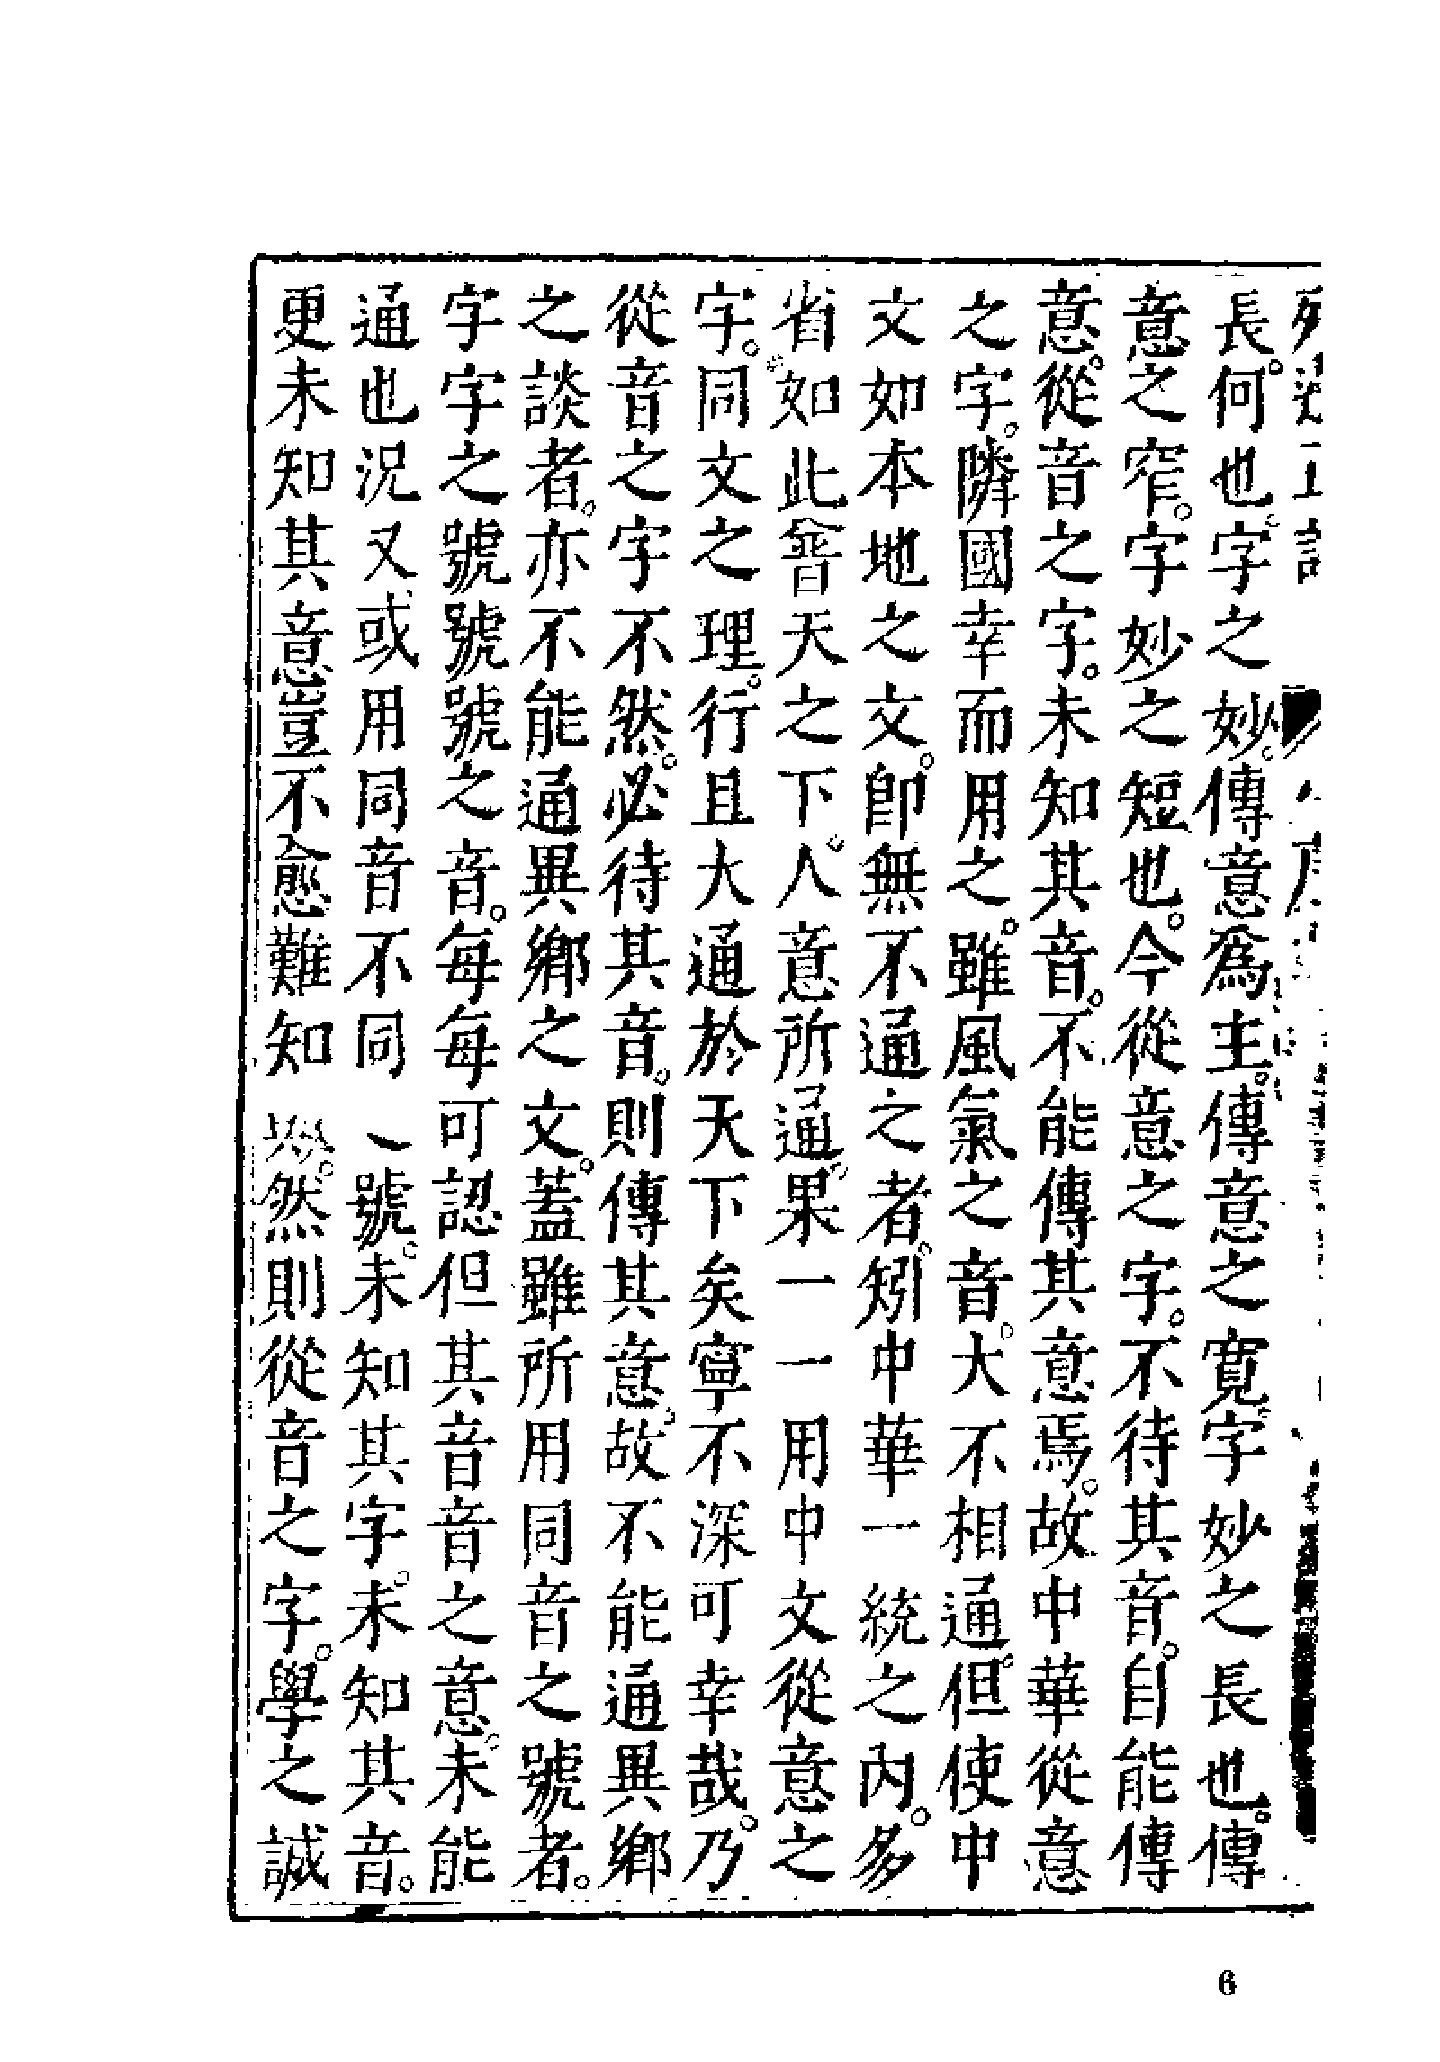 長。何也。字之妙。傳意爲主。傳意之寬。字妙之長也。傳
意之窄。字妙之短也。今從意之字。不待其音。自能傳
意。從音之字。未知其音。不能傳其意焉。故中華從意
之字。隣國幸而用之。雖風氣之音。大不相通。但使中
文如本地之文。卽無不通之者。矧中華一統之內。多
省如此。普天之下。人意所通。果一一用中文從意之
字。同文之理。行且大通於天下矣寧不深可幸哉。乃
從音之字不然。必待其音。則傳其意。故不能通異鄉
之談者。亦不能通異鄉之文。蓋雖所用同音之號者。
字字之號號號之音。每每可認但其音音之意。未能
通也况又或用同音不同號。未知其字。未知其音。
更未知其意豈不愈難知。然則從音之字。學之誠
6